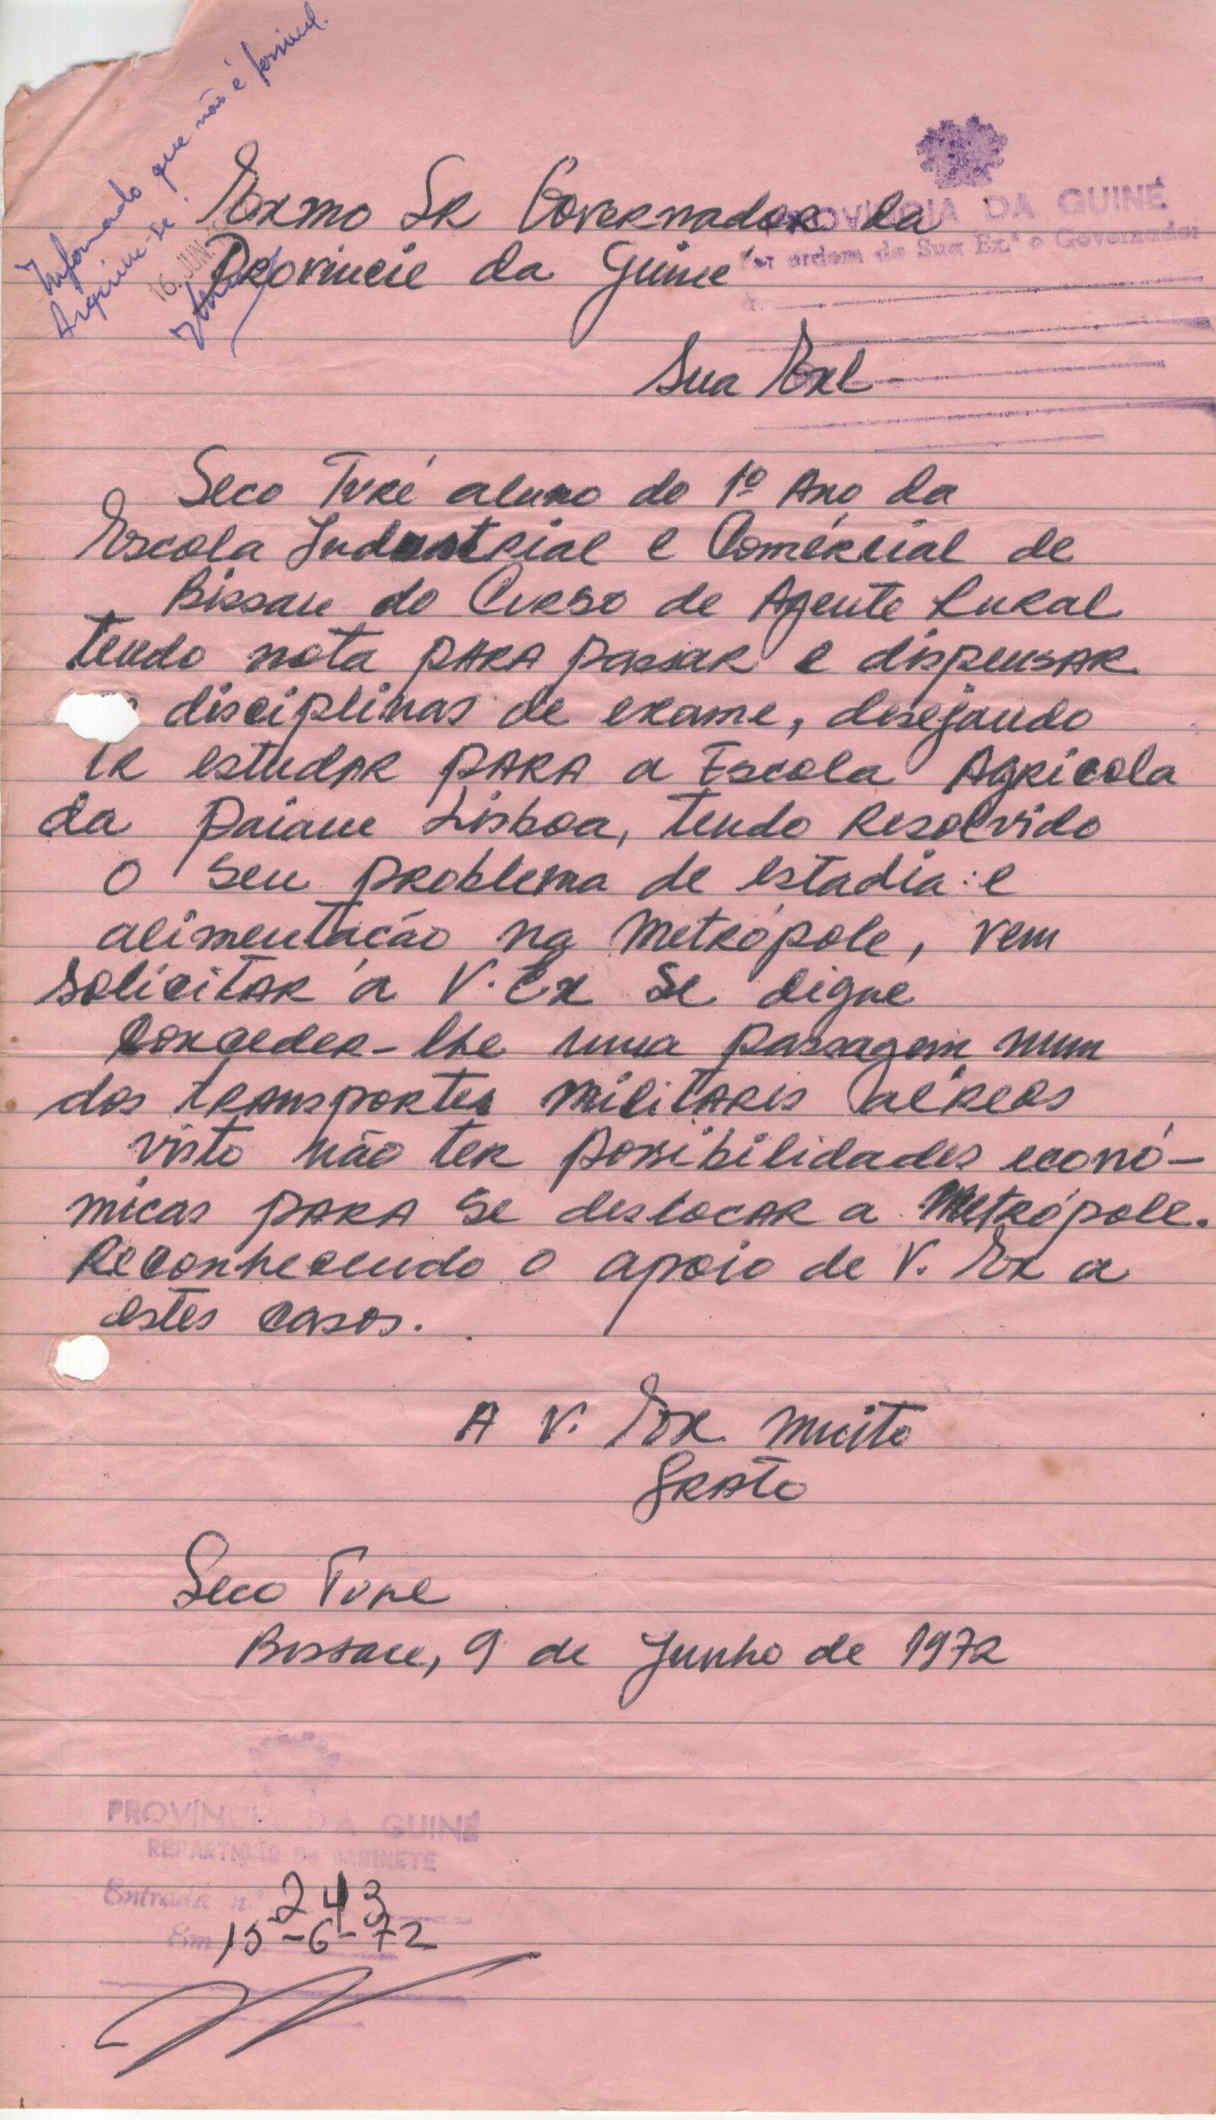 Informado que não é possível.
Arquive-se!
16. JUN.
Exmo Sr Governador da
Provincie da Guiné
PROVÍNCIA DA GUINÉ
Por ordem de Sua Ex.ª o Governador
Sua Exl
Seco Turé aluno do 1º Ano da
Escola Industrial e Comércial de
Bissau do Curso de Agente Rural
tendo nota para passar e dispensar
disciplinas de exame, desejando
ir estudar para a Escola Agricola
da paiam Lisboa, tendo Resolvido
o seu problema de estadia e
alimentacão na Metrópole, vem
solicitar á V. Ex se digne
conceder-lhe uma passagem num
dos transportes militares aéreos
visto não ter possibilidades econó-
micas para se deslocar a Metrópole.
Reconhecendo o apoio de V. Ex a
estes casos.
A V. Ex muito
Grato
Seco Ture
Bissau, 9 de Junho de 1972
PROVÍNCIA DA GUINÉ
REPARTIÇÃO DO GABINETE
Entrada n.º 243
Em 15-6-72